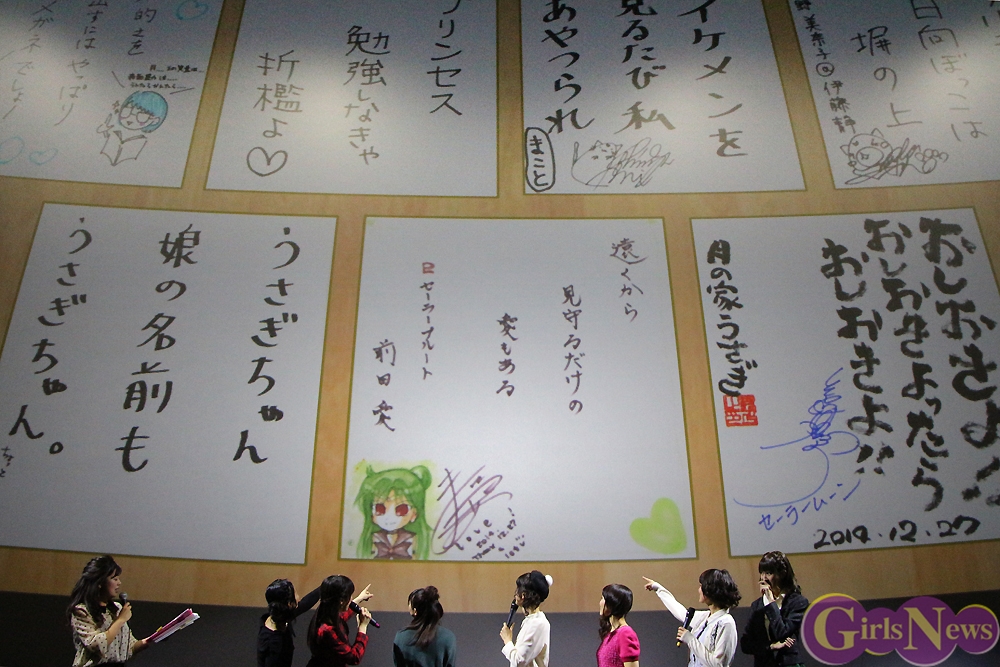 日向ぼっこは
堀の上
野美奈子@伊藤静
イケメンを
見るたび私
あやつられ
まこと
プリンセス
勉強しなきゃ
折檻よ
的さを
出すには やっぱり
メガネでしょ!
おしおきよ!!
おしおきよったら
おしおきよ!!
月の家うさぎ
セーラームーン
2014.12.27
遠くから
見守るだけの
愛もある
セーラープルート
前田愛
うさぎちゃん
娘の名前も
うさぎちゃん。
GirlsNews